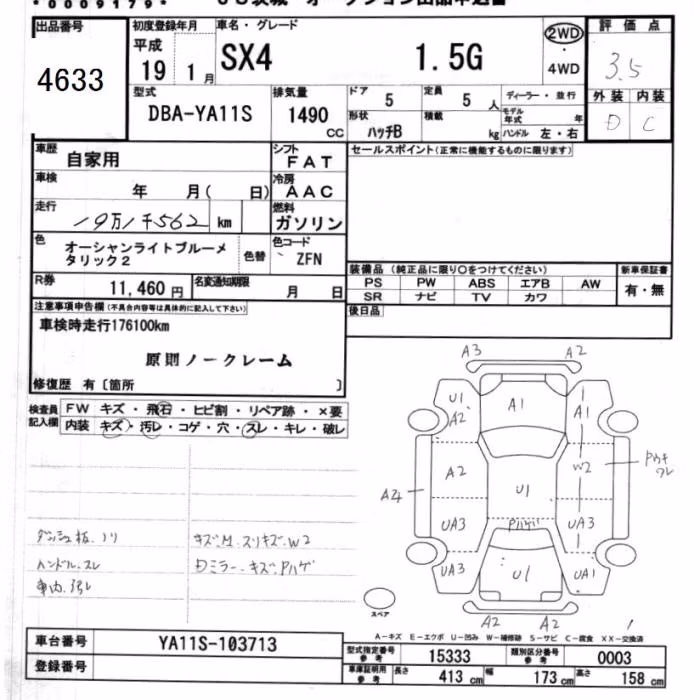 *00091 79*
出品番号
4633
初度登録年月
平成
19 1月
車名・グレード
SX4 1.5G
2WD
・
4WD
評価点
3.5
外装 内装
D C
型式
DBA-YA11S
排気量
1490
CC
ドア 5
定員 5 人
ディーラー・並行
形状 ハッチB
積載 kg
モデル年式 年
ハンドル 左・右
車歴
自家用
シフト
FAT
セールスポイント(正常に機能するものに限ります)
車検
年 月( 日)
冷房
AAC
走行
19万1千562 km
燃料
ガソリン
色
オーシャンライトブルーメ
タリック2
色替
色コード
ZFN
装備品(純正品に限り○をつけてください)
新車保証書
PS PW ABS エアB AW
有・無
SR ナビ TV カワ
R券
11,460 円
名変通知期限
月 日
後日品
注意事項申告欄(不具合内容等は具体的に記入して下さい)
車検時走行176100km
原則ノークレーム
修復歴 有〔箇所 〕
検査員
記入欄
FW キズ・飛石・ヒビ割・リペア跡・×要
内装 キズ・汚レ・コゲ・穴・スレ・キレ・破レ
A3 A2
U1
A2
A1
A1
A2
U1
W2
A4
UA3
Pハゲ
UA3
UA3
U1
UA1
A2 A2
スペア
ダッシュ板.ノリ
ハンドル.スレ
車内.汚レ
キズM.スリキズ.W2
Dミラー.キズ.Pハゲ
A-キズ E-エクボ U-凹み W-補修跡 S-サビ C-腐食 XX-交換済
車台番号
YA11S-103713
登録番号
型式指定番号
参考
15333
類別区分番号
参考
0003
車庫証明用
参考
長さ 413 cm
幅 173 cm
高さ 158 cm